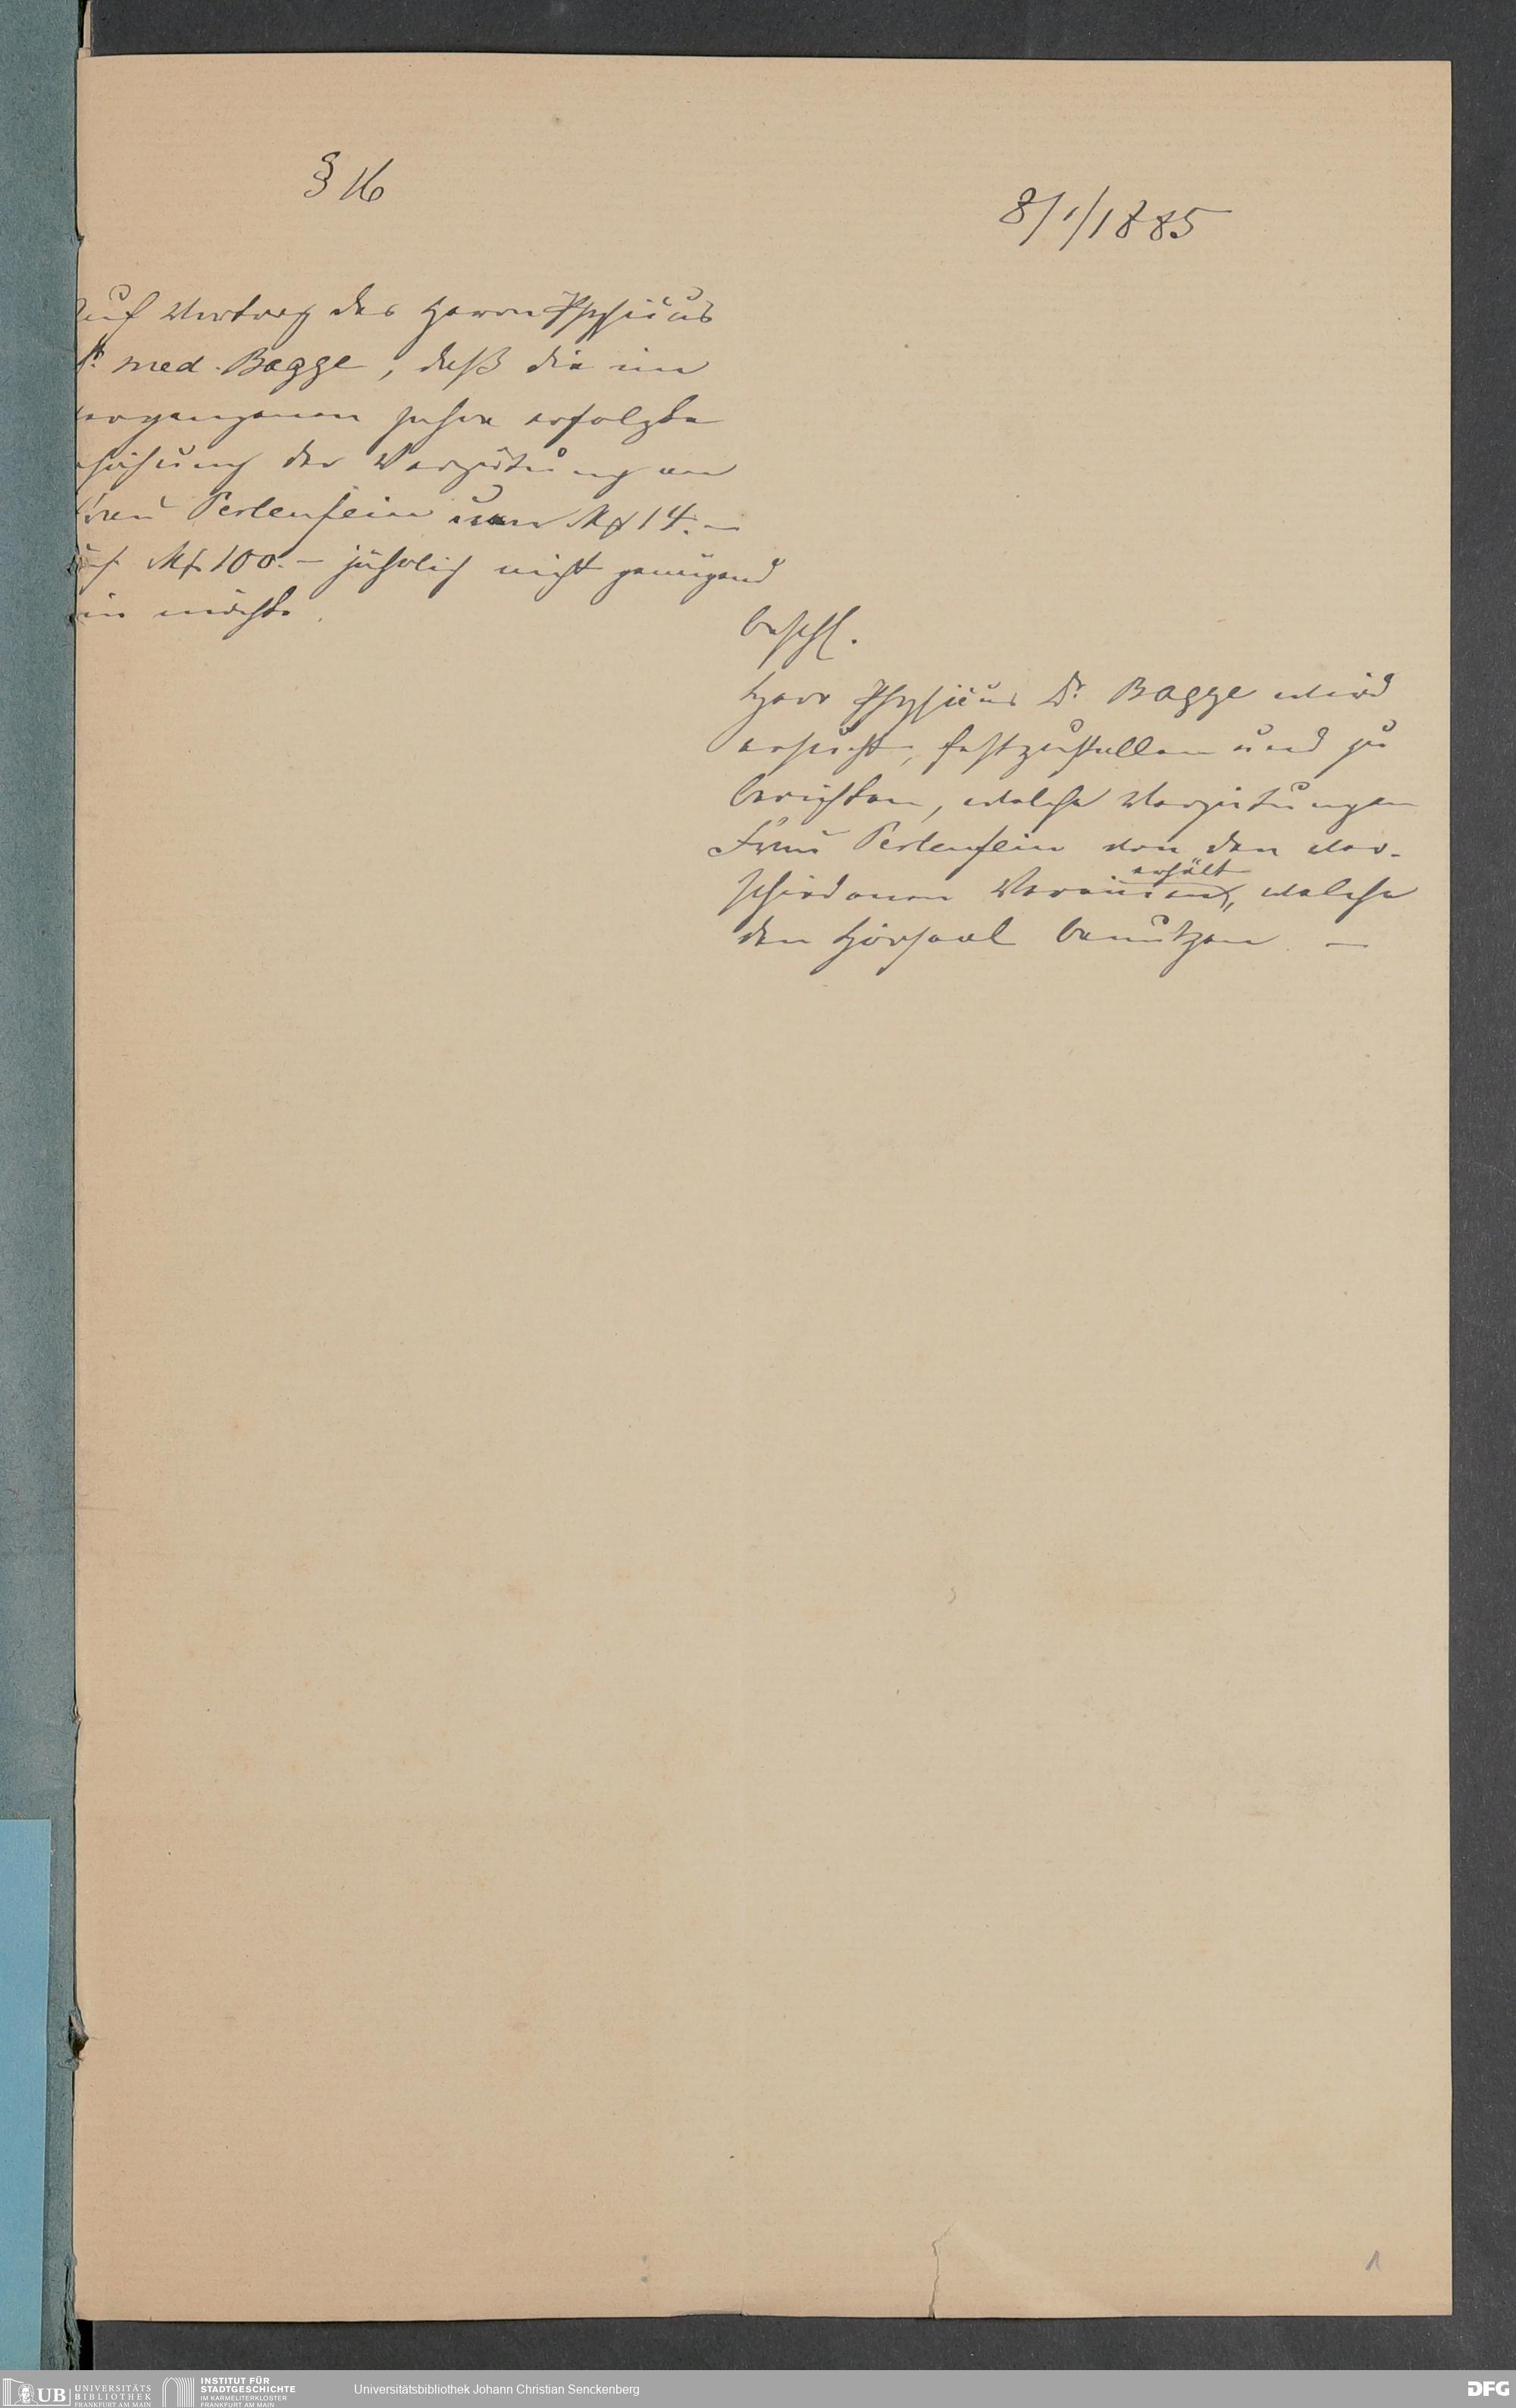 § 16
8/1/1885
Auf Vortrag des Herrn Physicus
Dr. med. Bagge, daß die im
vergangenen Jahre erfolgte
rhöhung der Vergütung an
Frau Perlenfein um M 14.—
auf M 100.— jährlich nicht genügend
ein möchte.
beschl.
Herr Physicus Dr. Bagge wird
ersucht, festzustellen und zu
berichten, welche Vergütungen
Frau Perlenfein von den ver-
erhält
schiedenen Vereinen, welche
den Hörsaal benutzen. —
1
UB UNIVERSITÄTS BIBLIOTHEK FRANKFURT AM MAIN
INSTITUT FÜR STADTGESCHICHTE IM KARMELITERKLOSTER FRANKFURT AM MAIN
Universitätsbibliothek Johann Christian Senckenberg
DFG